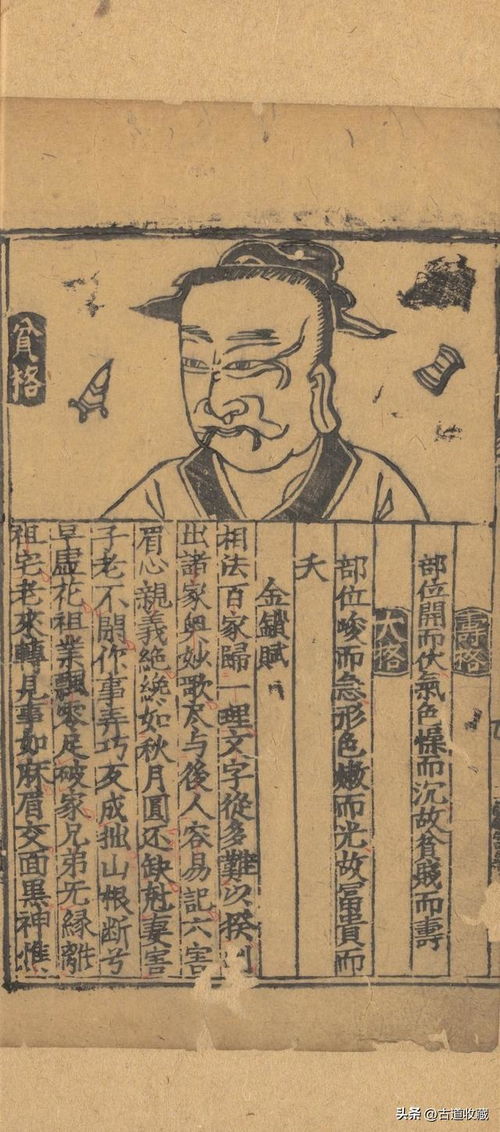 貧格
壽格
部位開而伏氣色而沉故貧賤而壽
夭格
部位峻而急形色嫩而光故冨貴而
夭
金鎖賦
相法百家歸一理文字從多難以揆
出諸家奧妙歌尽与後人容易記六害
眉心親義絶纔如秋月圓还缺尅妻害
子老不閑作事弄巧反成拙山根断兮
早虚花祖業飄零定破家兄弟无縁離
祖宅老來轉見事如麻眉交面黒神憔
头条 @古道收藏